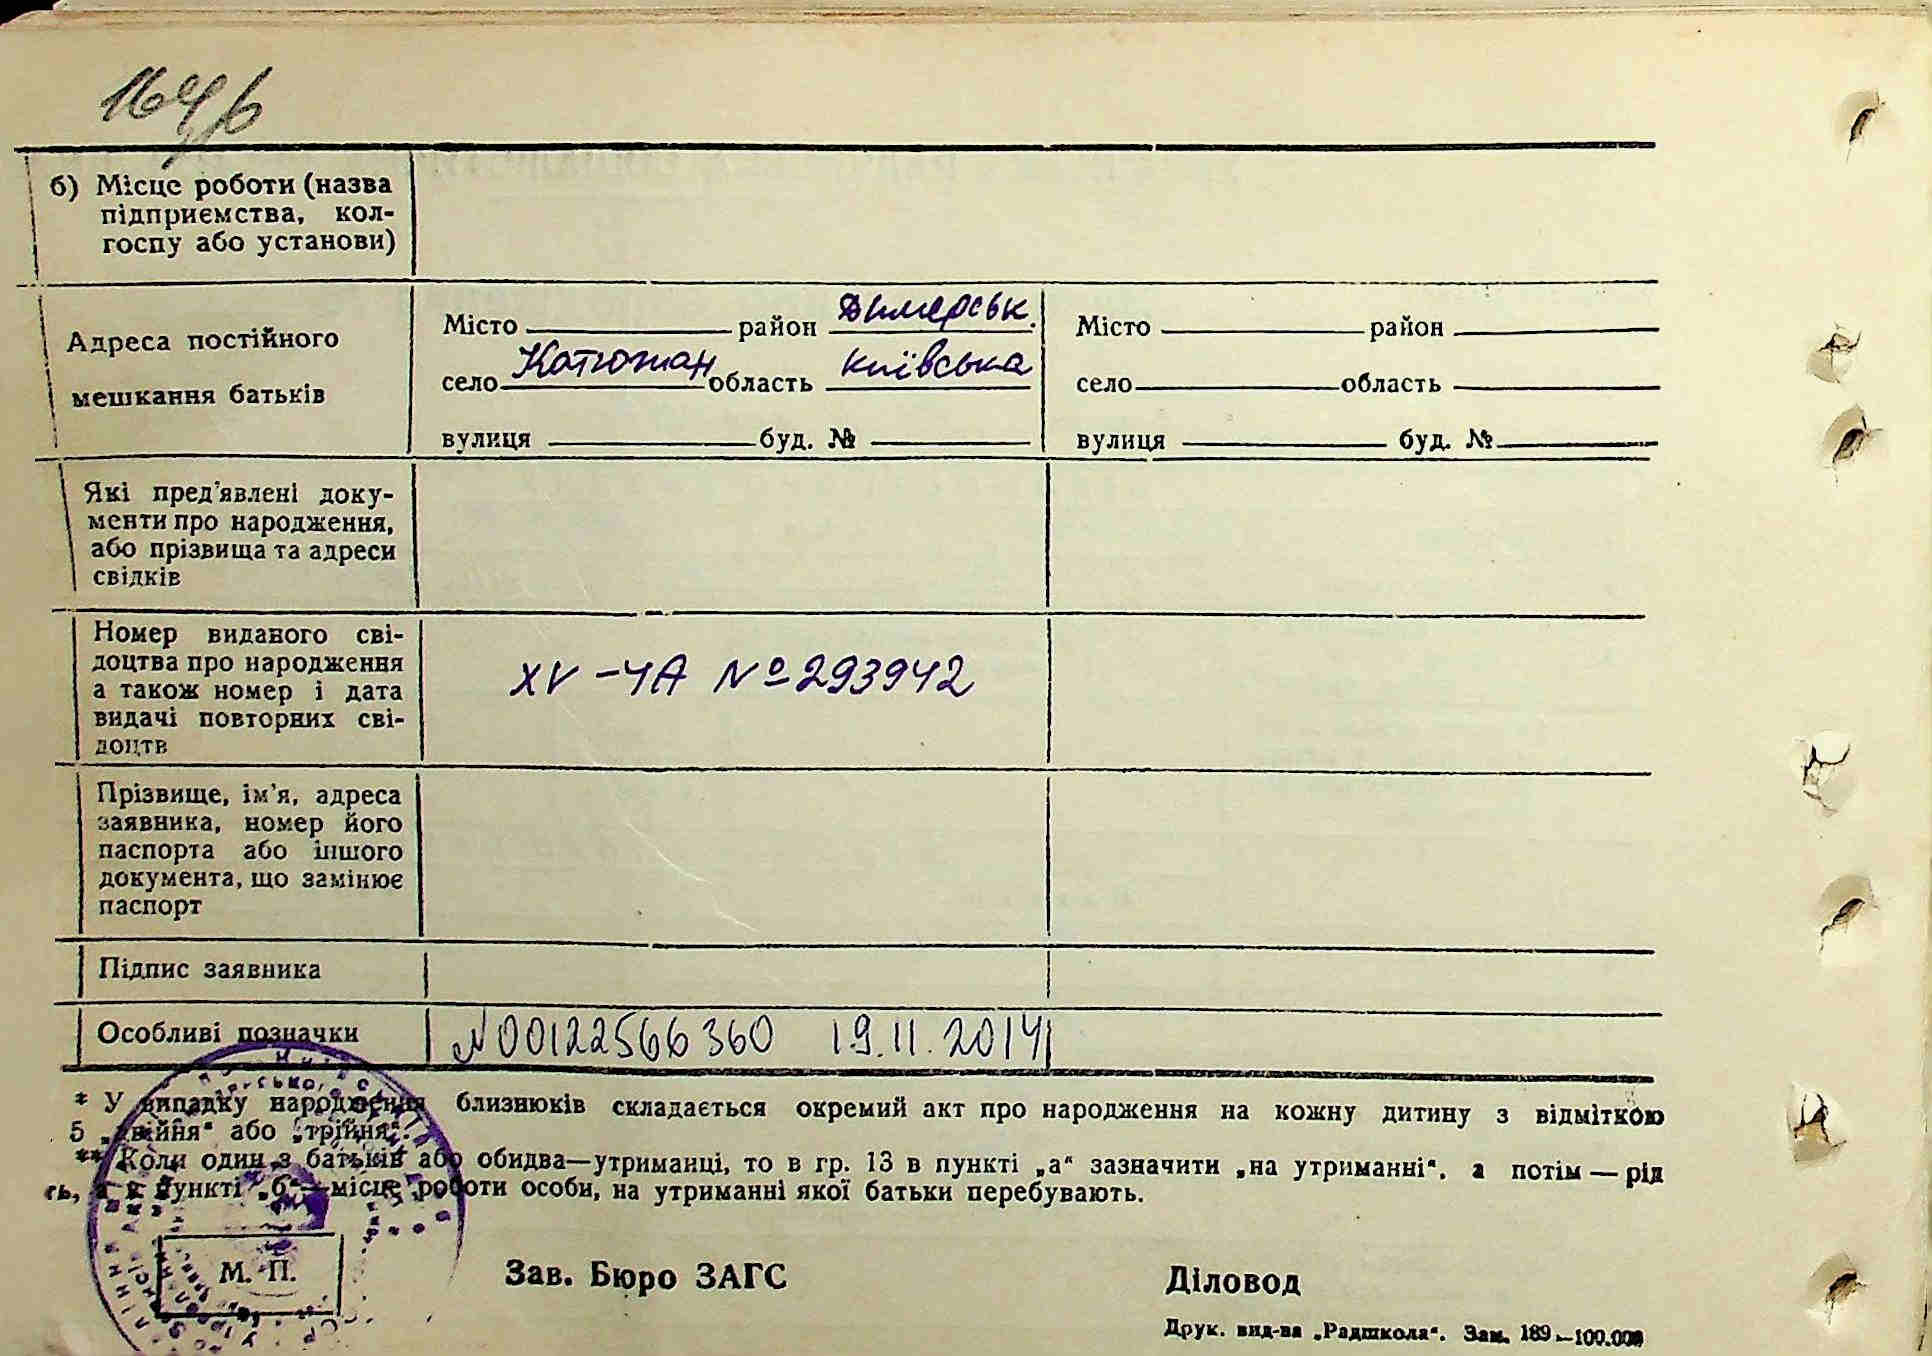 б) Місце роботи (назва
підприємства, кол-
госпу або установи)
Адреса постійного
мешкання батьків
Місто район Димерськ.
село Катюжан область Київська
вулиця буд. №
Місто район
село область
вулиця буд. №
Які пред'явлені доку-
менти про народження,
або прізвища та адреси
свідків
Номер виданого сві-
доцтва про народження
а також номер і дата
видачі повторних сві-
доцтв
XV-ЧА № 293942
Прізвище, ім'я, адреса
заявника, номер його
паспорта або іншого
документа, що замінює
паспорт
Підпис заявника
Особливі позначки
N00122566360 19.11.2014
* У випадку народження близнюків складається окремий акт про народження на кожну дитину з відміткою
5 „двійня“ або „трійня“.
** Коли один з батьків або обидва—утриманці, то в гр. 13 в пункті „а“ зазначити „на утриманні“, а потім — рід
сь, а в пункті „б“—місце роботи особи, на утриманні якої батьки перебувають.
М. П.
Зав. Бюро ЗАГС
Діловод
Друк. вид-ва „Радшкола“. Зам. 189—100.000